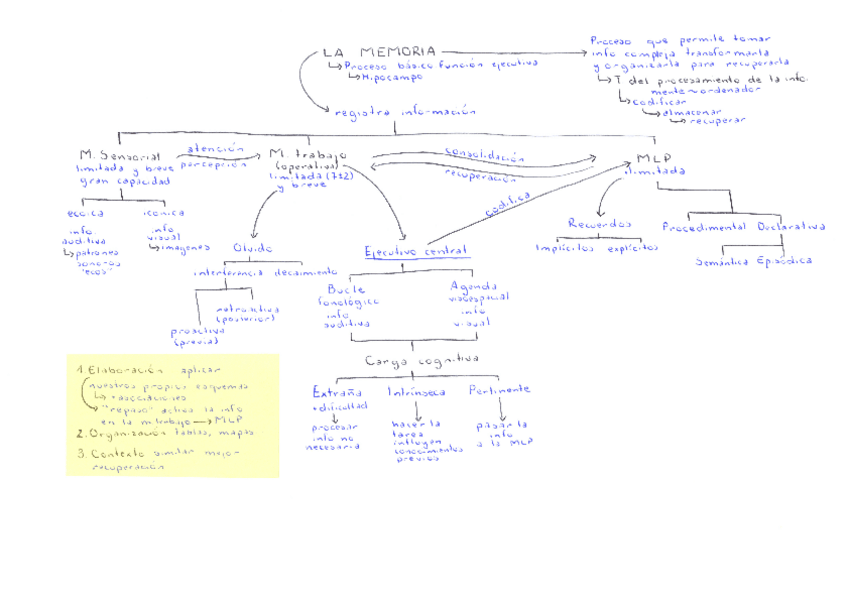 LA MEMORIA
Proceso básico función ejecutiva
Hipocampo
Proceso que permite tomar
info compleja transformarla
y organizarla para recuperarla
T del procesamiento de la info.
mente ~ ordenador
codificar
almacenar
recuperar
registra información
M. Sensorial
limitada y breve
gran capacidad
atención
percepción
M. trabajo
(operativa)
limitada (7±2)
y breve
consolidación
recuperación
codifica
MLP
ilimitada
ecoica
info
auditiva
patrones
sonoros
"ecos"
icónica
info
visual
imágenes
Olvido
interferencia decaimiento
retroactiva
(posterior)
proactiva
(previa)
Ejecutivo central
Bucle
fonológico
info
auditiva
Agenda
visoespacial
info
visual
Recuerdos
Implícitos explícitos
Procedimental Declarativa
Semántica Episódica
Carga cognitiva
Extraña
+ dificultad
procesar
info no
necesaria
Intrínseca
hacer la
tarea
influyen
conocimientos
previos
Pertinente
pasar la
info
a la MLP
1. Elaboración aplicar
nuestros propios esquemas
+ asociaciones
"repaso" activa la info
en la m.trabajo → MLP
2. Organización tablas, mapas
3. Contexto similar mejor
recuperación